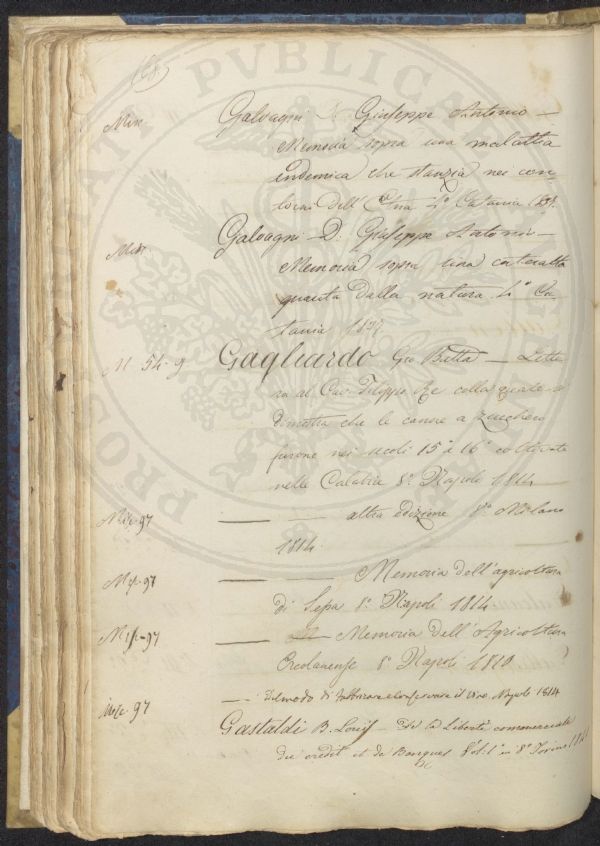 (68)
Min Galvagni D. Giuseppe Antonio —
Memoria sopra una malattia
endemica che stanzia nei con
torni dell'Etna 4° Catania
Min Galvagni D. Giuseppe Antonio —
Memoria sopra una cateratta
guarita dalla natura 4° Ca
tania
M 54-9 Gagliardo Gio Batta — Lette
ra al Cav. Filippo Re colla quale si
dimostra che le canne a zucchero
furono nei secoli 15° a 16° coltivate
nelle Calabrie 8° Napoli 1814
Mis-97 — — altra edizione 8° Milano
1814
Mis-97 — — Memoria dell'agricoltura
di 8° Napoli 1814
Mis-97 — — Memoria dell'Agricoltura
Ercolanense 8° Napoli 1810
— Del modo di fabbricare e conservare il vino Napoli 1814
Misc. 97 Gastaldi B. Louis — De la Liberté commerciale
du crédit et de Banques Vol. 1° in 8° Torino
PROCURATI PUBLICAE